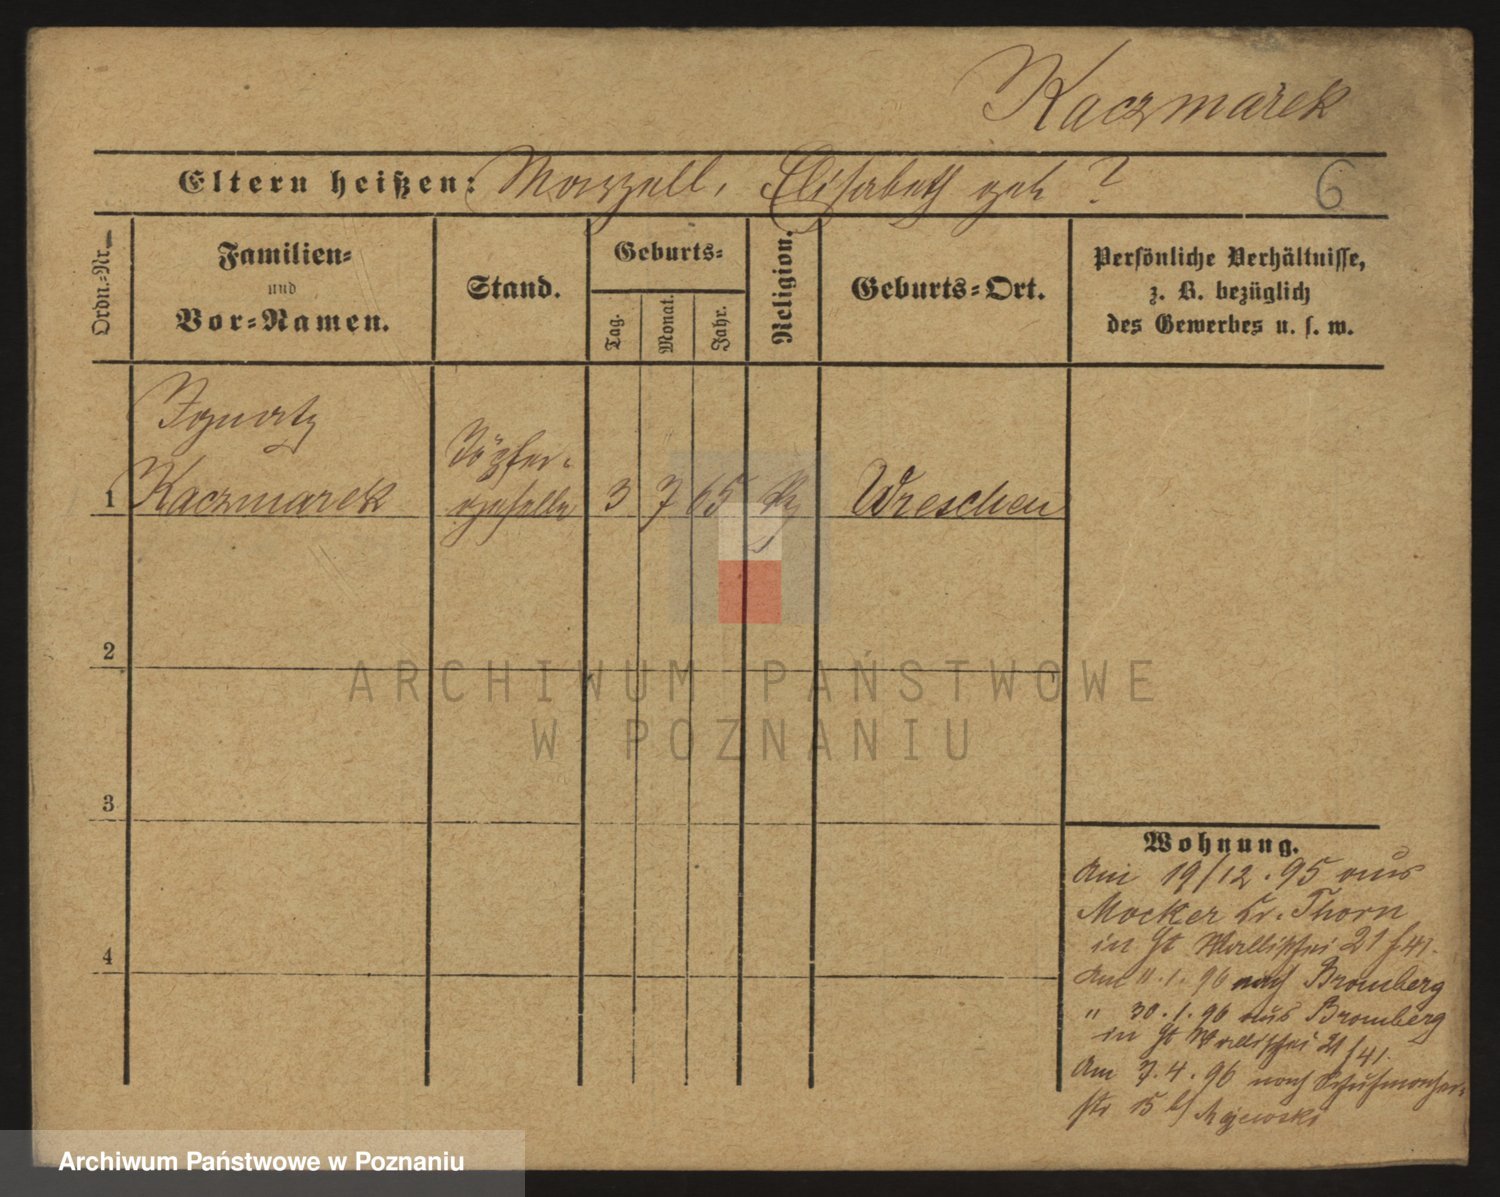 Kaczmarek
Eltern heißen: Marzell, Elisabeth geb ?
6
Ordn.-Nr.
Familien-
und
Vor-Namen.
Stand.
Geburts-
Tag.
Monat.
Jahr.
Religion.
Geburts-Ort.
Persönliche Verhältnisse,
z. B. bezüglich
des Gewerbes u. s. w.
Ignatz
1 Kaczmarek
Töpfer-
geselle
3 7 65
Wreschen
2
3
4
Wohnung.
Am 19/12.95 aus
Mocker Kr. Thorn
in Wallischei 21
Am 11.1.96 nach Bromberg
" 30.1.96 aus Bromberg
in Wallischei 21
Am 7.4.96 nach Schuhmacher-
str 15 b/ Majewski
ARCHIWUM PAŃSTWOWE
W POZNANIU
Archiwum Państwowe w Poznaniu